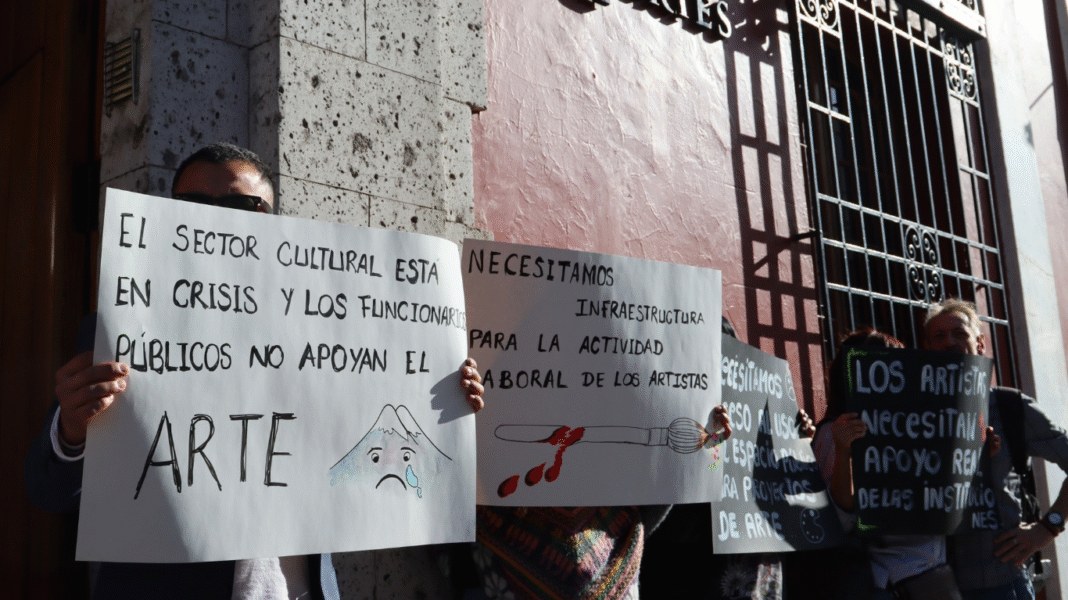 EL SECTOR CULTURAL ESTÁ
EN CRISIS Y LOS FUNCIONARIOS
PÚBLICOS NO APOYAN EL
ARTE
NECESITAMOS
INFRAESTRUCTURA
PARA LA ACTIVIDAD
LABORAL DE LOS ARTISTAS
NECESITAMOS
USO
ESPACIO
DE ARTE
LOS ARTISTAS
NECESITAN
APOYO REAL
DE LAS INSTITUCIO
NES